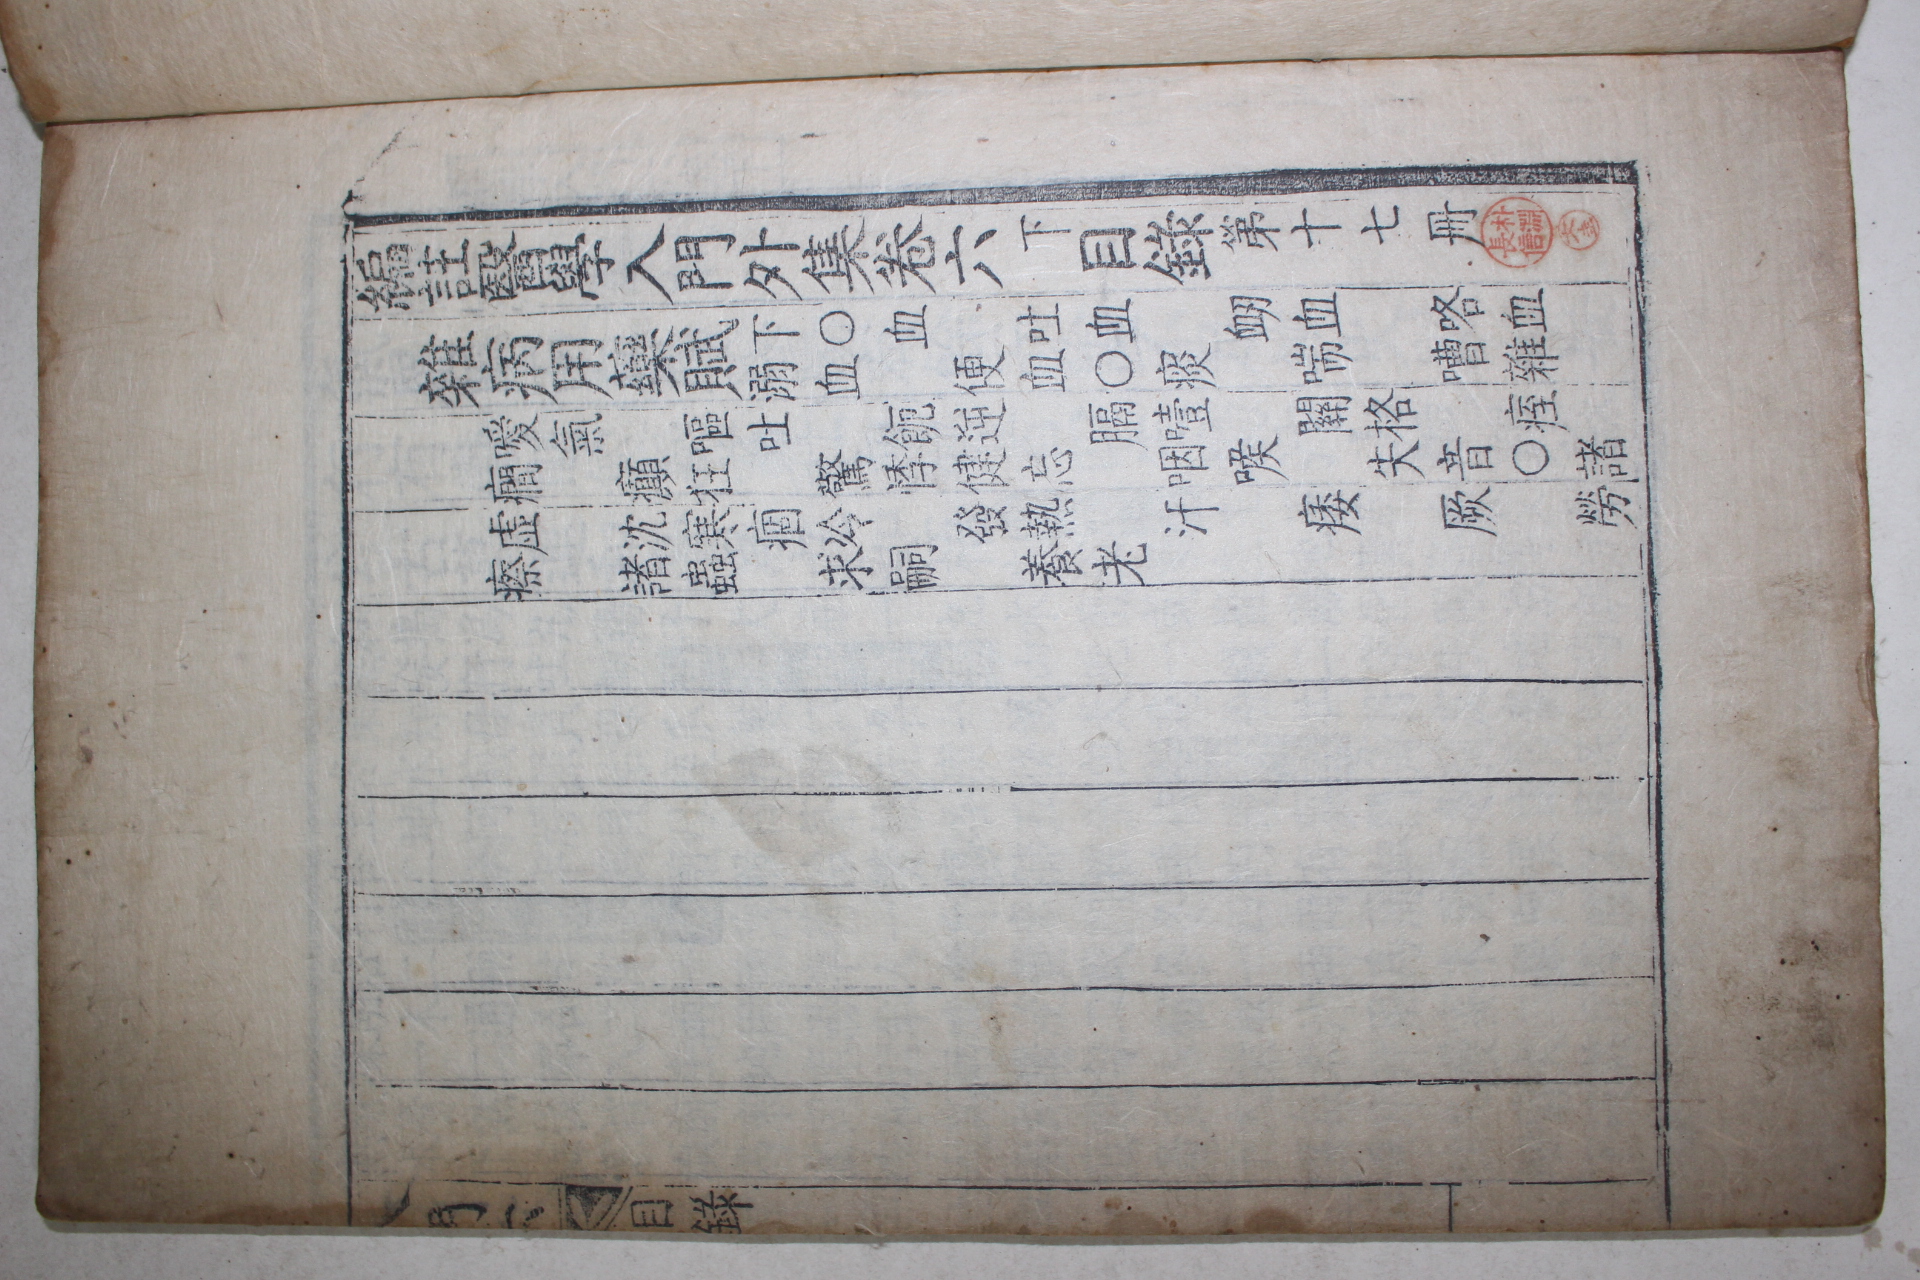 編註醫學入門外集卷六下目錄第十七冊
雜病用藥賦下○血 吐血 衂血 咯血
溺血 便血○痰 喘 嘈雜
噯氣 嘔吐 呃逆 膈噎 關格 痓
癎 癲狂 驚悸健忘 咽喉 失音○諸
虛 沈寒痼冷 發熱 汗 痿 厥 勞
瘵 諸蟲 求嗣 養老
朴淵
長信
門
目錄
一